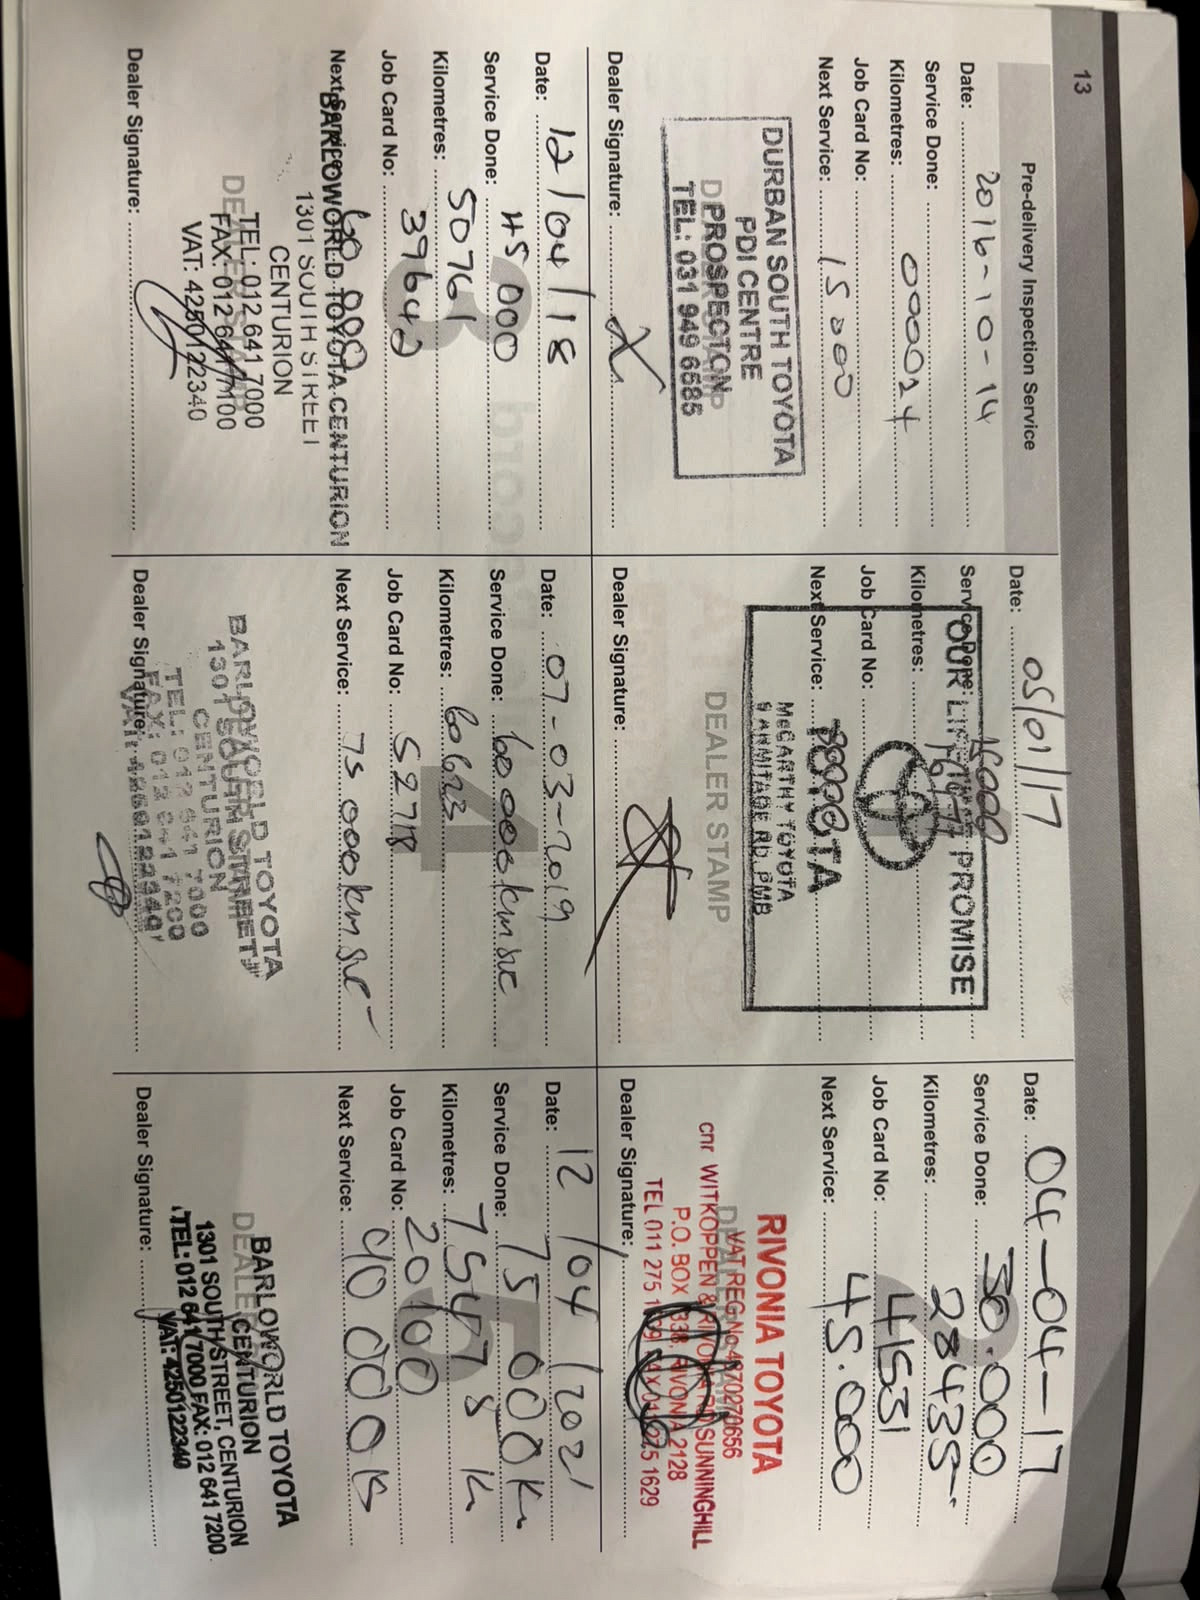 13
Pre-delivery Inspection Service
Date: 2016-10-14
Service Done:
Kilometres: 000024
Job Card No:
Next Service: 15000
DURBAN SOUTH TOYOTA
PDI CENTRE
PROSPECTON
TEL: 031 949 6585
Dealer Signature:
Date: 05/01/17
Service Done: 15000
OUR PROMISE
Kilometres:
Job Card No:
Next Service:
McCARTHY TOYOTA
ARMITAGE RD. PMB
DEALER STAMP
Dealer Signature:
Date: 04-04-17
Service Done: 30.000
Kilometres: 28435
Job Card No: 41531
Next Service: 45.000
RIVONIA TOYOTA
VAT REG No 4870270656
cnr WITKOPPEN & RIVONIA RD SUNNINGHILL
P.O. BOX 1338 RIVONIA 2128
TEL 011 275 1629
Dealer Signature:
3
Date: 12/04/18
Service Done: 45000
Kilometres: 50761
Job Card No: 39642
Next Service: 60 000
BARLOWORLD TOYOTA CENTURION
1301 SOUTH STREET
CENTURION
TEL: 012 641 7000
FAX: 012 641 7100
VAT: 4250122340
Dealer Signature:
4
Date: 07-03-2019
Service Done: 60 000km svc
Kilometres: 60623
Job Card No: 52718
Next Service: 75 000km svc
BARLOWORLD TOYOTA
1301 SOUTH STREET
CENTURION
TEL: 012 641 7000
FAX: 012 641 7200
VAT: 4250122340
Dealer Signature:
5
Date: 12/04/2021
Service Done: 75 000K
Kilometres: 75478 K
Job Card No: 20100
Next Service: 90 000 K
BARLOWORLD TOYOTA
CENTURION
1301 SOUTH STREET, CENTURION
TEL: 012 641 7000 FAX: 012 641 7200
VAT: 4250122340
Dealer Signature: